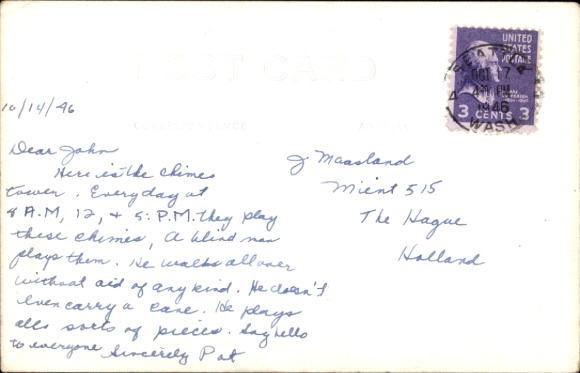 POST CARD
CORRESPONDENCE
UNITED
STATES
POSTAGE
3 CENTS 3
SEATTLE
OCT 17
4 PM
1946
WASH
10/14/46
Dear John
Here is the chimes
tower. Everyday at
8 A.M, 12, + 5: P.M. they play
these chimes, A blind man
plays them. He walks all over
without aid of any kind. He doesn't
even carry a cane. He plays
alls sorts of pieces. Say hello
to everyone Sincerely Pat
J Maasland
Mient 515
The Hague
Holland